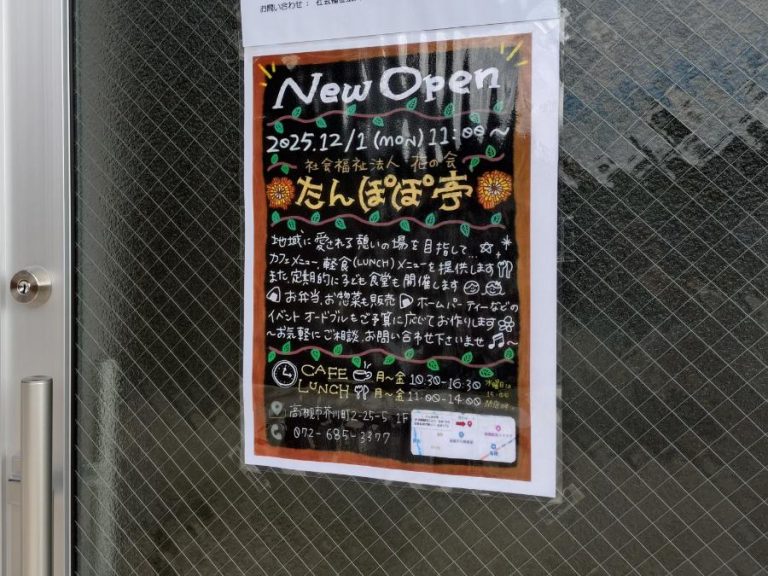 お問い合わせ： 社会福祉法
New Open
2025.12/1 (MON) 11:00～
社会福祉法人 花の会
たんぽぽ亭
地域に愛される憩いの場を目指して...
カフェメニュー 軽食(LUNCH)メニューを提供します
また、定期的に子ども食堂も開催します
お弁当、お惣菜も販売 ホームパーティーなどの
イベントオードブルもご予算に応じてお作りします
～お気軽にご相談、お問い合わせ下さいませ♫～
CAFE 月～金 10:30-16:30
LUNCH 月～金 11:00-14:00
水曜日は
15:00
閉店
高槻市芥川町2-25-5 1F
072-685-3377